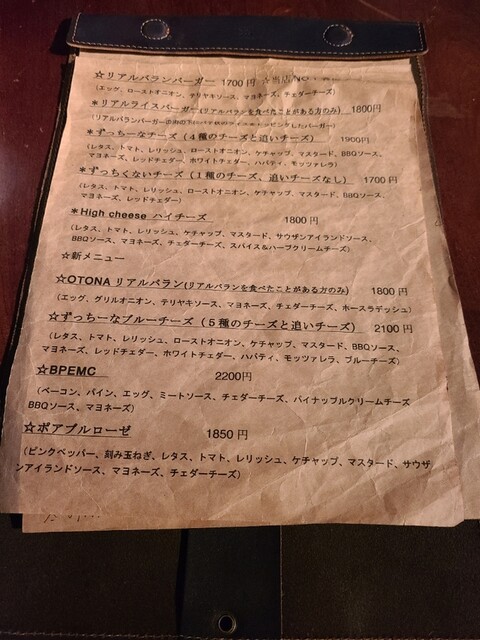 ☆リアルバランバーガー 1700円 ☆当店NO
(エッグ、ローストオニオン、テリヤキソース、マヨネーズ、チェダーチーズ)
*リアルライスバーガー(リアルバランを食べたことがある方のみ) 1800円
(リアルバランバーガーの
*ずっちーなチーズ(4種のチーズと追いチーズ) 1900円
(レタス、トマト、レリッシュ、ローストオニオン、ケチャップ、マスタード、BBQソース、
マヨネーズ、レッドチェダー、ホワイトチェダー、ハバティ、モッツァレラ)
*ずっちくないチーズ(1種のチーズ、追いチーズなし) 1700円
(レタス、トマト、レリッシュ、ローストオニオン、ケチャップ、マスタード、BBQソース、
マヨネーズ、レッドチェダー)
*High cheese ハイチーズ 1800円
(レタス、トマト、レリッシュ、ケチャップ、マスタード、サウザンアイランドソース、
BBQソース、マヨネーズ、チェダーチーズ、スパイス&ハーブクリームチーズ)
☆新メニュー
☆OTONAリアルバラン(リアルバランを食べたことがある方のみ) 1800円
(エッグ、グリルオニオン、テリヤキソース、マヨネーズ、チェダーチーズ、ホースラデッシュ)
☆ずっちーなブルーチーズ(5種のチーズと追いチーズ) 2100円
(レタス、トマト、レリッシュ、ローストオニオン、ケチャップ、マスタード、BBQソース、
マヨネーズ、レッドチェダー、ホワイトチェダー、ハバティ、モッツァレラ、ブルーチーズ)
☆BPEMC 2200円
(ベーコン、パイン、エッグ、ミートソース、チェダーチーズ、パイナップルクリームチーズ
BBQソース、マヨネーズ)
☆ポアブルローゼ 1850円
(ピンクペッパー、刻み玉ねぎ、レタス、トマト、レリッシュ、ケチャップ、マスタード、サウザ
ンアイランドソース、マヨネーズ、チェダーチーズ)